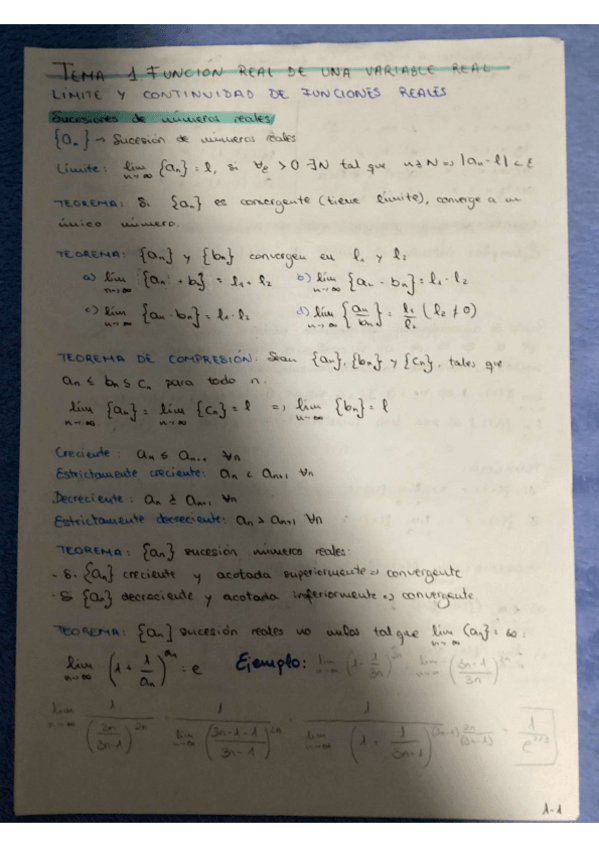 TEMA 1. FUNCIÓN REAL DE UNA VARIABLE REAL
LÍMITE Y CONTINUIDAD DE FUNCIONES REALES
Sucesiones de números reales
{aₙ} → Sucesión de números reales
Límite: lim n→∞ {aₙ} = l, si ∀ε > 0 ∃N tal que n ≥ N ⇒ |aₙ - l| < ε
TEOREMA: Si {aₙ} es convergente (tiene límite), converge a un
único número.
TEOREMA: {aₙ} y {bₙ} convergen en l₁ y l₂
a) lim n→∞ {aₙ + bₙ} = l₁ + l₂ b) lim n→∞ {aₙ - bₙ} = l₁ - l₂
c) lim n→∞ {aₙ · bₙ} = l₁ · l₂ d) lim n→∞ {aₙ/bₙ} = l₁/l₂ (l₂ ≠ 0)
TEOREMA DE COMPRESIÓN: Sean {aₙ}, {bₙ} y {cₙ}, tales que
aₙ ≤ bₙ ≤ cₙ para todo n.
lim n→∞ {aₙ} = lim n→∞ {cₙ} = l ⇒ lim n→∞ {bₙ} = l
Creciente: aₙ ≤ aₙ₊₁ ∀n
Estrictamente creciente: aₙ < aₙ₊₁ ∀n
Decreciente: aₙ ≥ aₙ₊₁ ∀n
Estrictamente decreciente: aₙ > aₙ₊₁ ∀n
TEOREMA: {aₙ} sucesión números reales:
- Si {aₙ} creciente y acotada superiormente ⇒ convergente
- Si {aₙ} decreciente y acotada inferiormente ⇒ convergente
TEOREMA: {aₙ} sucesión reales no nulos tal que lim n→∞ {aₙ} = ∞:
lim n→∞ (1 + 1/aₙ)^aₙ = e Ejemplo: lim n→∞ (1 - 1/3n)^2n = lim n→∞ (3n-1/3n)^2n =
lim n→∞ 1/(3n/3n-1)^2n = 1/lim n→∞ (3n-1+1/3n-1)^2n = 1/lim n→∞ (1 + 1/3n-1)^(3n-1) 2n/(3n-1) = 1/e^2/3
1-1